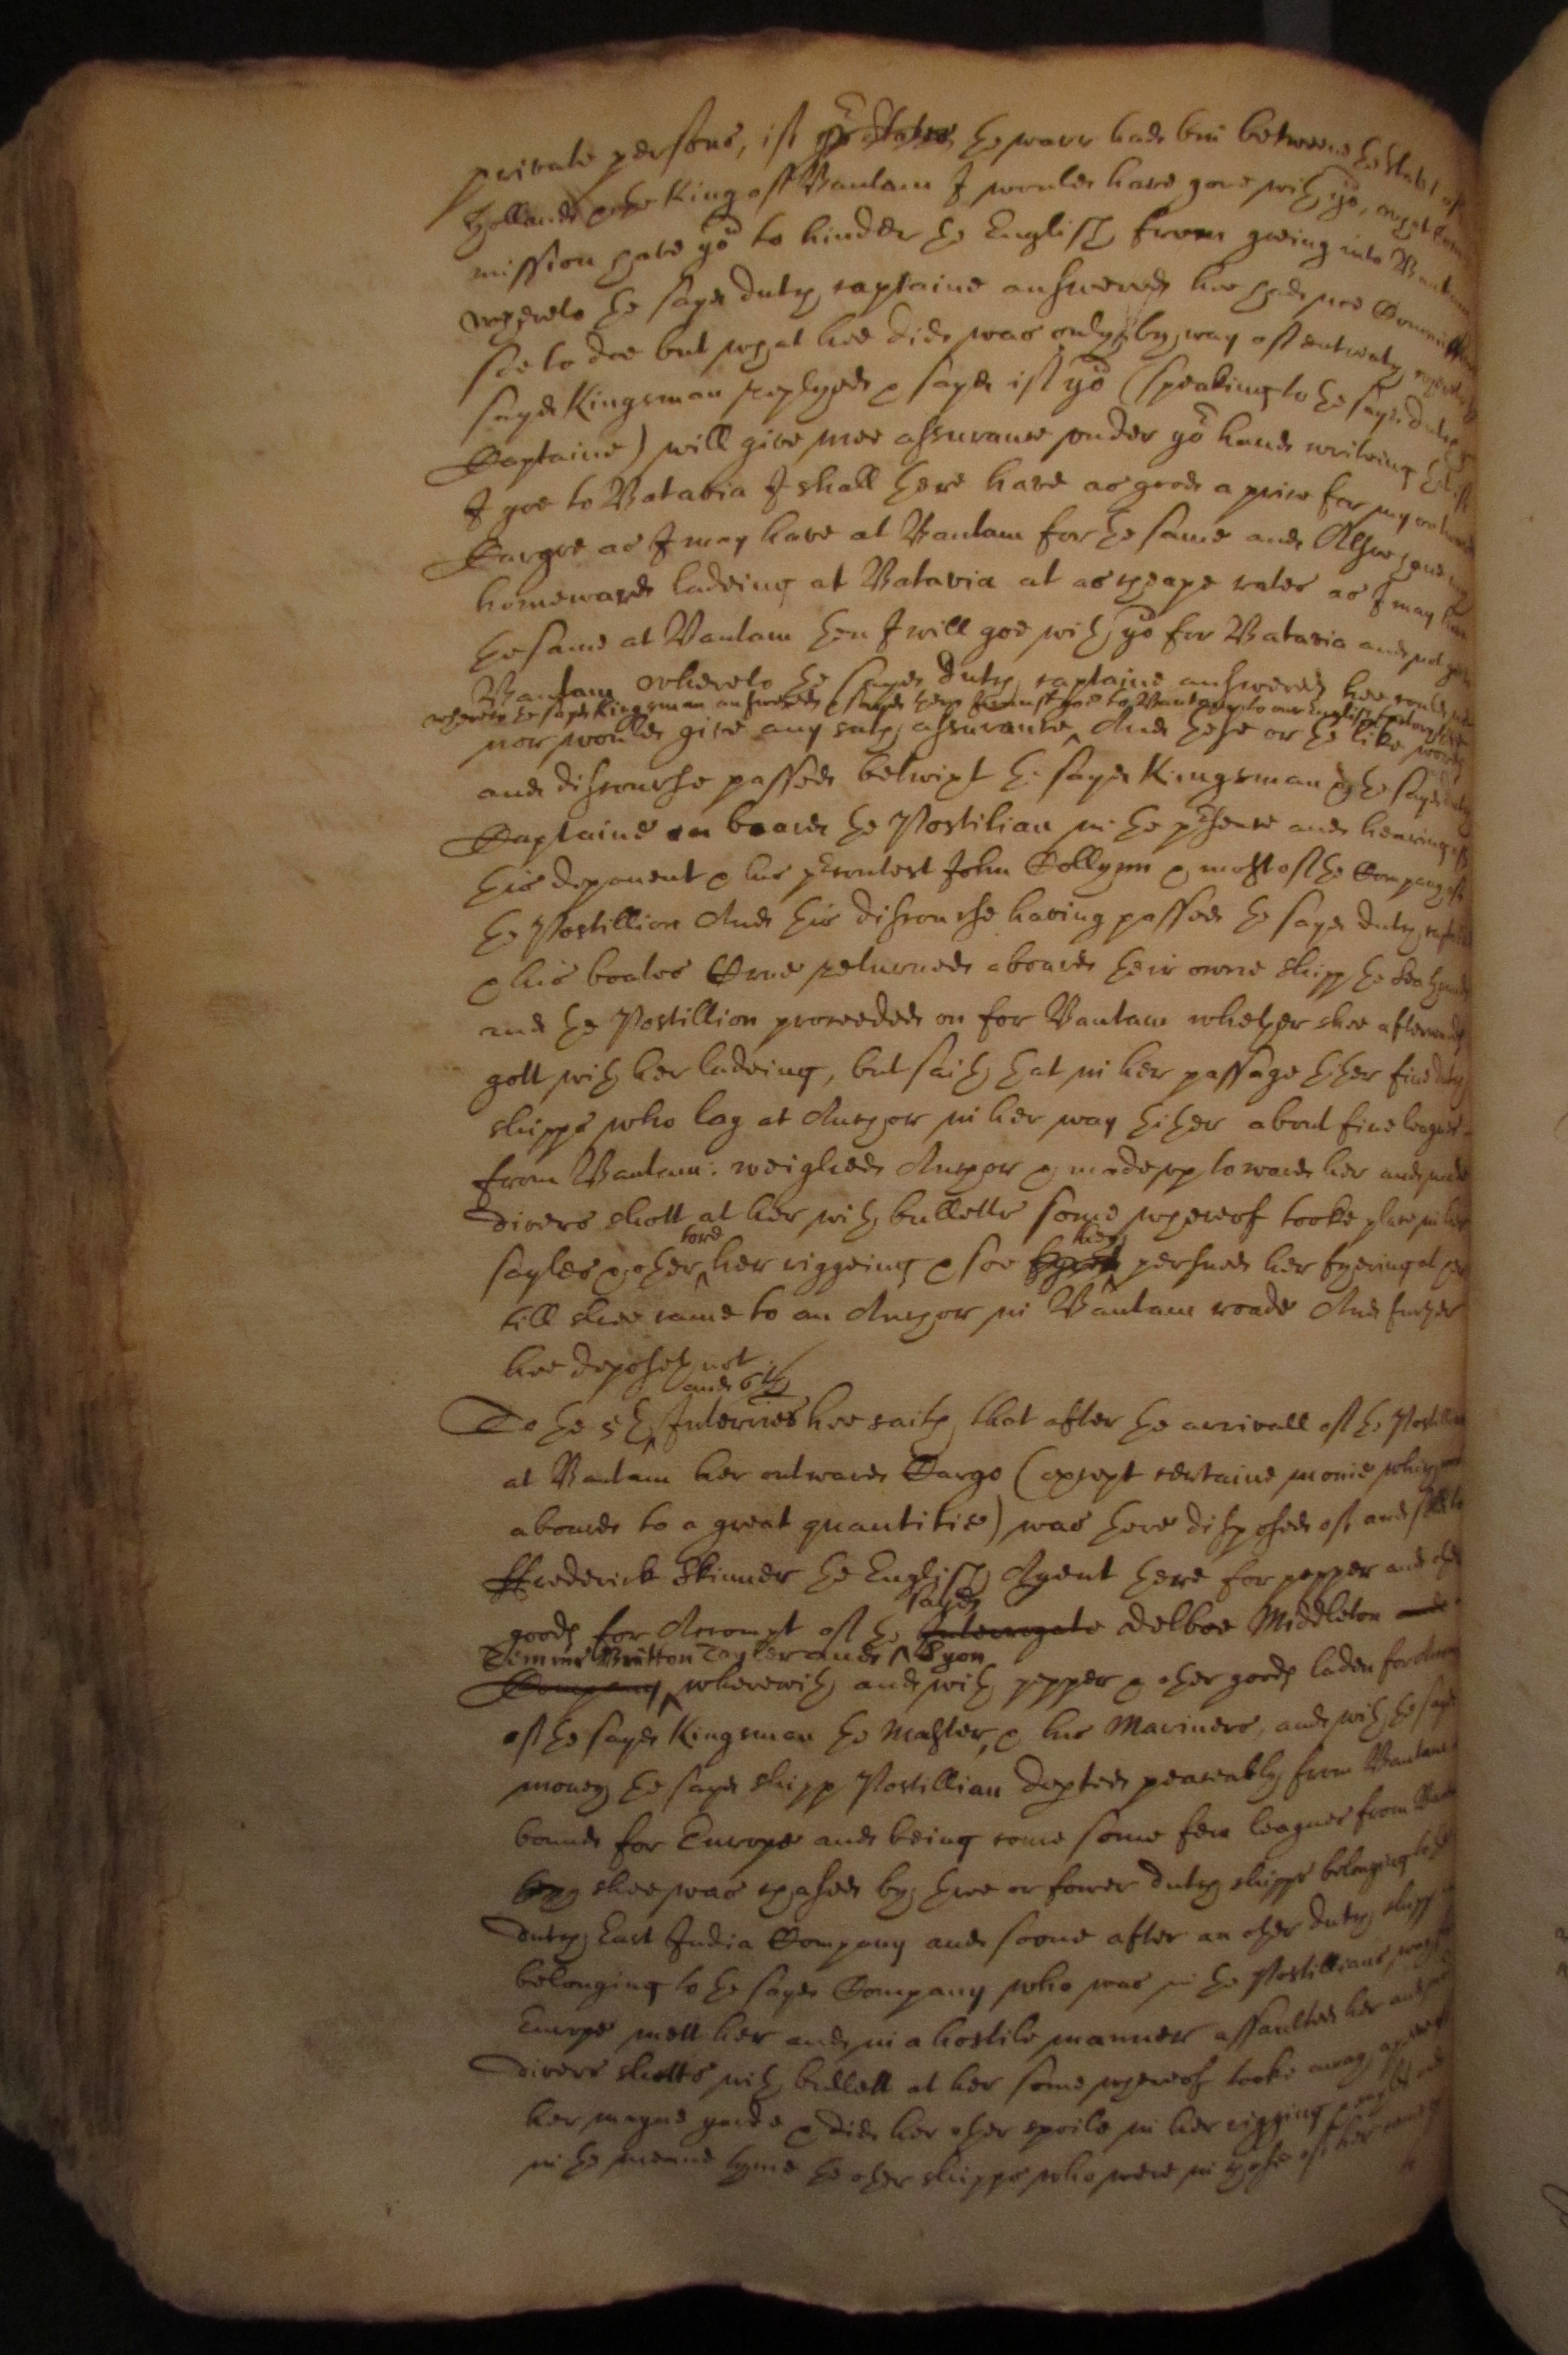 private persons, if the warr had bin betweene the States of
Holland & the King of Bantam I would have gone with yo:, what Com
mission have yo: to hinder the English from goeing into Bantam
whereto the sayd dutch captaine answered hee had noe Commission
soe to doe but what hee did was only by way of entreaty, whereto the
sayd Kingsman replyed & sayd if yo: (speaking to the sayd dutch
Captaine) will give mee assurance under yo: hand writeing that if
I goe to Batavia I shall there have as good a price for my outward
Cargoe as I may have at Bantam for the same and Alsoe have my
homeward ladeing at Batavia at as cheape rates as I may have
the same at Bantam then I will goe with yo: for Batavia and not goe to
Bantam whereto the sayd dutch captaine answered hee could not
whereto the sayd Kingsman answered & sayd then I must goe to Bantam to our English
nor would give any such assurance, And these or the like words
and discourse passed betwixt the sayd Kingsman & the sayd dutch
Captaine on board the Postilian in the presence and hearing of
this deponent & his precontest John Collynn & most of the Company of
the Postillion And this discourse having passed the sayd dutch captaine
& his boates Crue returned aboard their owne shipp the
and the Postillion proceeded on for Bantam whether shee afterwards
gott with her ladeing, but saith that in her passage thither five dutch
shipps who lay at Anchor in her way thither about five leagues
from Bantam: weighed Anchor & made up towards her and made
divers shott at her with bulletts some whereof tooke place in her
sayles & other tore her riggeing & soe they persued her fyering at her
till shee came to an Anchor in Bantam roade And further
hee deposeth not
To the 5th and 6th Interries hee saith that after the arrivall of the Postillion
at Bantam her outward Cargo (except certaine monie which was
aboard to a great quantitie) was there disposed of and sold to
ffrederick Skinner the English Agent there for pepper and other
goods for Accompt of the sayd Interrogate Delboe Middleton and
Temms Britton Tayler and Lyon
Company wherewith and with pepper & other goods laden for Accompt
of the sayd Kingsman the Master, & his Mariners, and with the sayd
money the sayd shipp Postillian depted peaceably from Bantam
bound for Europe and being come some few leagues from Bantam
shee was chased by three or fower dutch shipps belonging to the
dutch East India Company and soone after an other dutch shipp
belonging to the sayd Company who was in the Postillians way for
Europe mett her and in a hostile manner assaulted her and made
divers shotts with bullett at her some whereof tooke away a peece of
her mayne yard & did her other spoile in her rigging,
in the meane tyme the other shipps who were in chase of her came